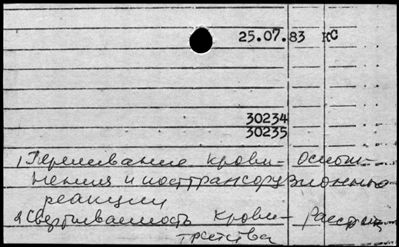 25.07.83 КС
30234
30235
1 Переливание крови - ослож-
нения и посттрансфузионные
реакции
2 Свертываемость крови - расст-
ройства